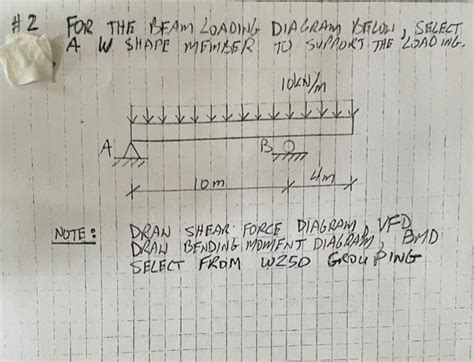 #2 FOR THE BEAM LOADING DIAGRAM BELOW, SELECT
A W SHAPE MEMBER TO SUPPORT THE LOADING.
10kN/m
A B
10m 4m
NOTE: DRAW SHEAR FORCE DIAGRAM, VFD
DRAW BENDING MOMENT DIAGRAM, BMD
SELECT FROM W250 GROUPING